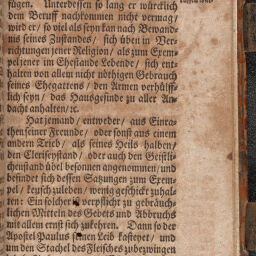 fügen. Unterdessen so lang er würcklich
dem Beruff nachkommen nicht vermag/
wird er/ so viel als seyn kan nach Bewand-
nis seines Zustandes/ sich üben in Ver-
richtungen jener Religion/ als zum Exem-
pel jener im Ehestande Lebende/ sich ent-
halten von allem nicht nöthigen Gebrauch
seines Ehegattens/ den Armen verhülff-
lich seyn/ das Hausgesinde zu aller An-
dacht anhalten/ ꝛc.
Hat jemand/ entweder/ aus Einra-
then seiner Freunde/ oder sonst aus einem
andern Trieb/ als seines Heils halben/
den Clerikstand/ oder auch den Geistli-
chenstand übel besonnen angenommen/ und
befindet sich dessen Satzungen zum Exem-
pel/ keusch zuleben/ wenig geschickt zuhal-
ten: Ein solcher ist verpflicht zu gebräuch-
lichen Mitteln des Gebets und Abbruchs
mit allem ernst sich zukehren. Dann so der
Apostel Paulus seinen Leib kasteyet/ und
um den Stachel des Fleisches zubezwingen